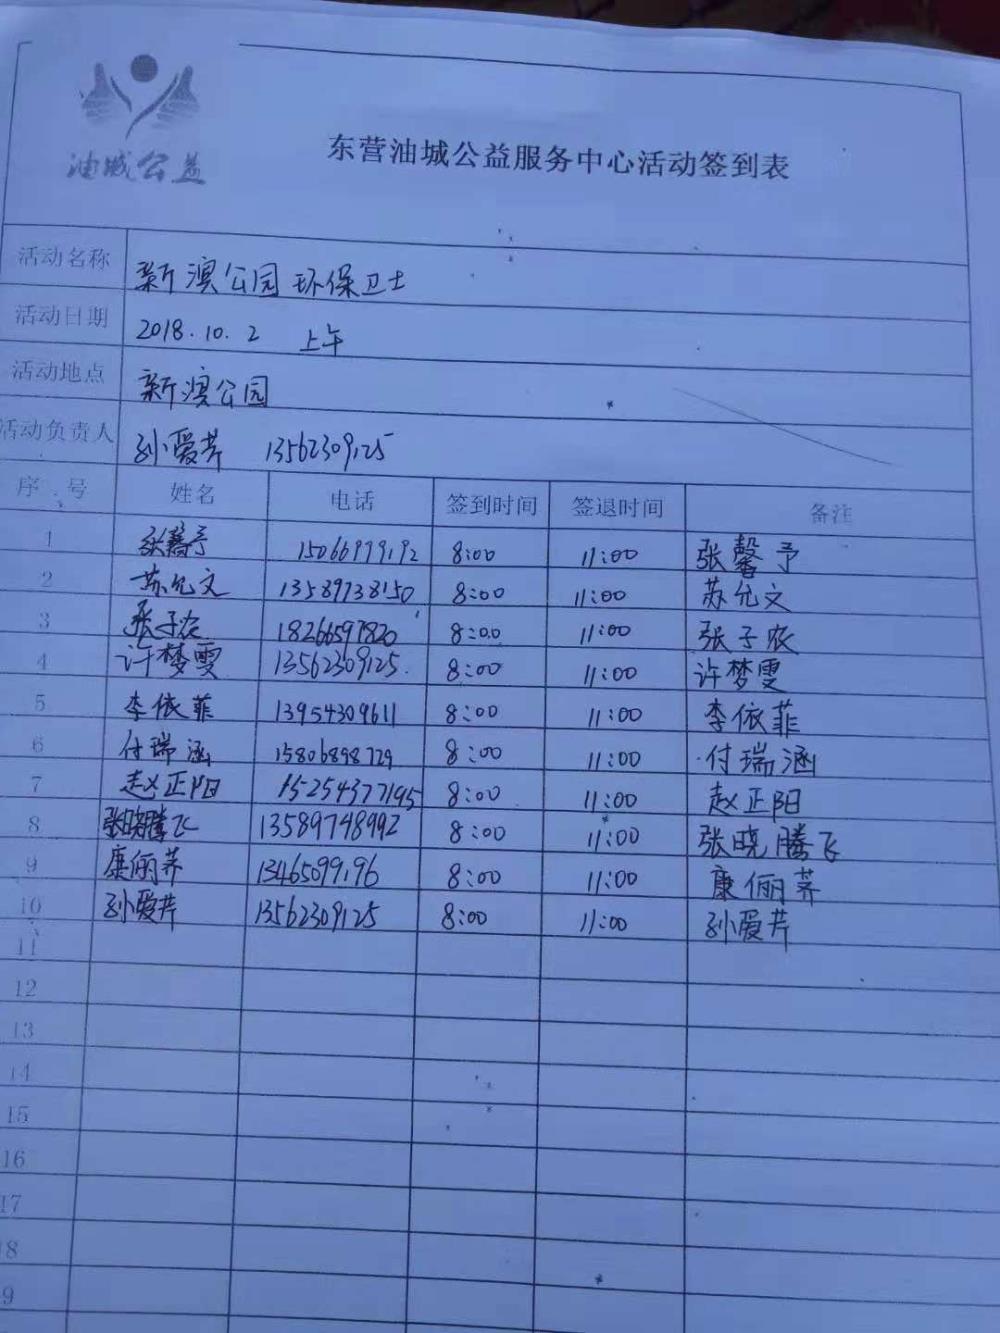 油城公益
东营油城公益服务中心活动签到表
活动名称 新澳公园 环保卫士
活动日期 2018.10.2 上午
活动地点 新澳公园
活动负责人 孙爱芹 13562309125
序号 姓名 电话 签到时间 签退时间 备注
1 张馨予 15066979192 8:00 11:00 张馨予
2 苏允文 13589938150 8:00 11:00 苏允文
3 张子农 18266597820 8:00 11:00 张子农
4 许梦雯 13562309125 8:00 11:00 许梦雯
5 李依菲 13954309611 8:00 11:00 李依菲
6 付瑞涵 15806898729 8:00 11:00 付瑞涵
7 赵正阳 15254377195 8:00 11:00 赵正阳
8 张晓腾飞 13589748992 8:00 11:00 张晓腾飞
9 康俪荞 13465099196 8:00 11:00 康俪荞
10 孙爱芹 13562309125 8:00 11:00 孙爱芹
11
12
13
14
15
16
17
18
9